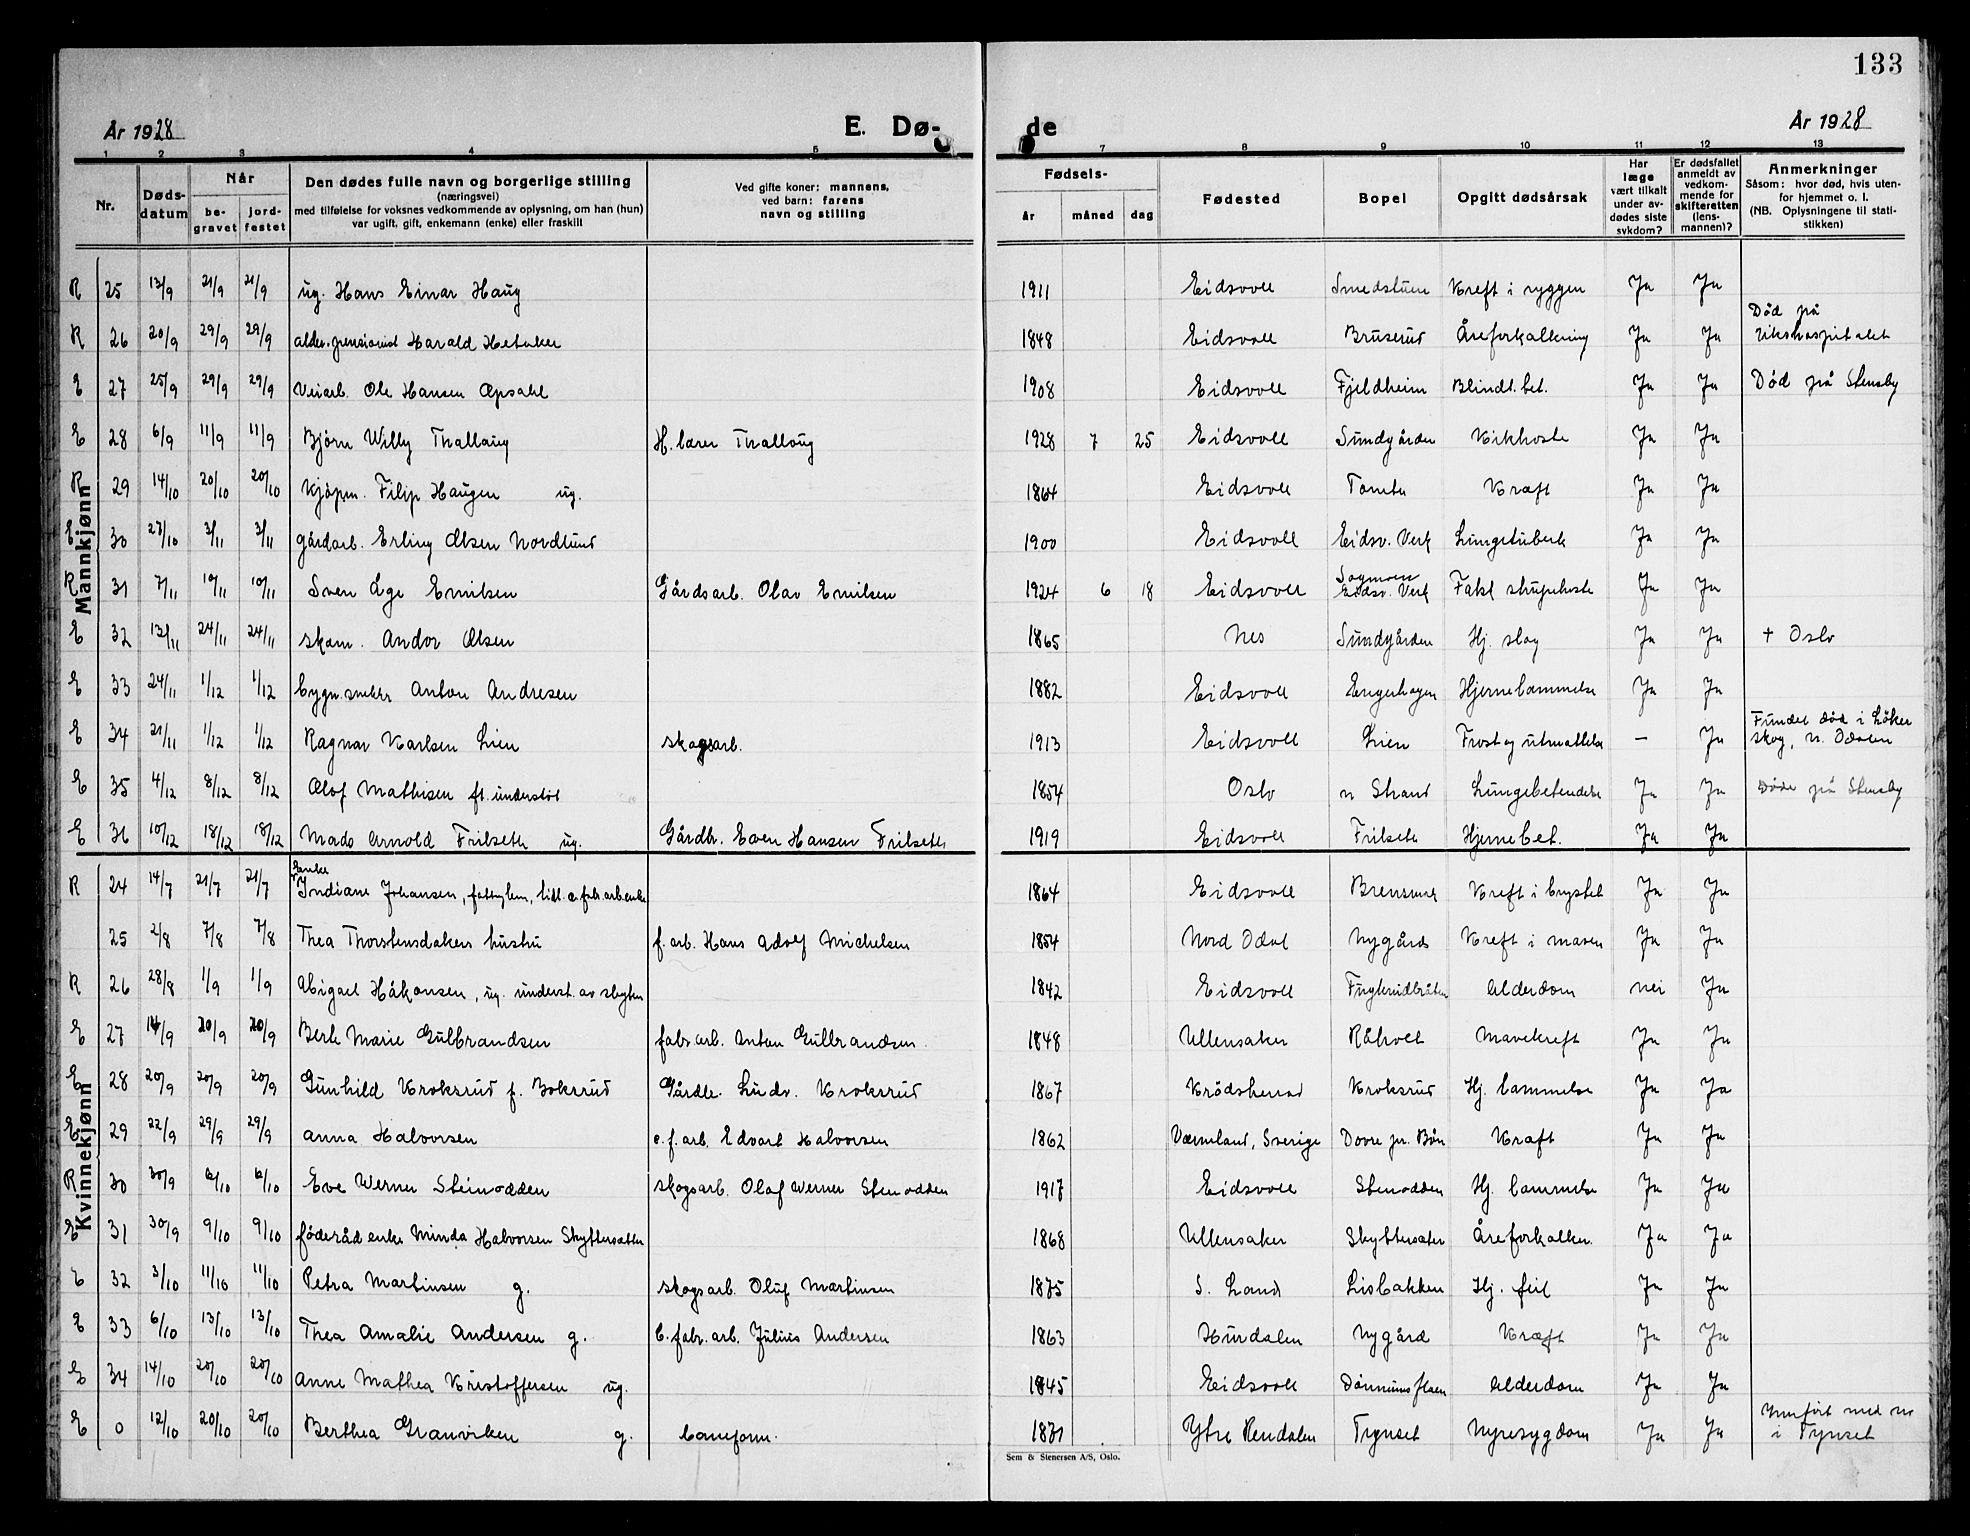 133
År 1928 E. Dø- de År 1928
1 2 3 4 5 7 8 9 10 11 12 13
Nr.
Døds-
datum
Når
be-
gravet
jord-
festet
Den dødes fulle navn og borgerlige stilling
(næringsvei)
med tilføielse for voksnes vedkommende av oplysning, om han (hun)
var ugift, gift, enkemann (enke) eller fraskill
Ved gifte koner: mannens,
ved barn: farens
navn og stilling
Fødsels-
år måned dag
Fødested
Bopel
Opgitt dødsårsak
Har
læge
vært tilkalt
under av-
dødes siste
sykdom?
Er dødsfallet
anmeldt av
vedkom-
mende for
skifteretten
(lens-
mannen)?
Anmerkninger
Såsom: hvor død, hvis uten-
for hjemmet o. l.
(NB. Oplysningene til stati-
stikken)
Mannkjønn
R 25 13/9 21/9 21/9 ug. Hans Einar Haug 1911 Eidsvoll Smedstuen Kreft i ryggen Ja Ja
R 26 20/9 29/9 29/9 alder.pensionist Harald Hetaker 1848 Eidsvoll Bruserud Åreforkalkning Ja Ja Død på
Rikshospitalet
E 27 25/9 29/9 29/9 Veiarb. Ole Hansen Opsahl 1908 Eidsvoll Fjeldheim Blindt.bet. Ja Ja Død på Stensby
E 28 6/9 11/9 11/9 Bjørn Willy Thallaug H. lærer Thallaug 1928 7 25 Eidsvoll Sundgården Kikhoste Ja Ja
R 29 14/10 20/10 20/10 Kjøpm. Filip Haugen ug. 1864 Eidsvoll Tomta Kræft Ja Ja
E 30 27/10 3/11 3/11 gårdarb. Erling Olsen Nordlund 1900 Eidsvoll Eidsv. Verk Lungetuberk Ja Ja
R 31 7/11 10/11 10/11 Sven Åge Emilsen Gårdsarb. Olav Emilsen 1924 6 18 Eidsvoll Sagmoen
Eidsv. Verk Falsk strupehoste Ja Ja
E 32 13/11 24/11 24/11 skom. Andor Olsen 1865 Nes Sundgården Hj. slag Ja Ja + Oslo
E 33 24/11 1/12 1/12 bygn.snekker Anton Andresen 1882 Eidsvoll Engerhagen Hjernelammelse Ja Ja
E 34 21/11 1/12 1/12 Ragnar Karlsen Lien skogsarb. 1913 Eidsvoll Lien Frost og utmattelse — Ja Fundet død i Løker
skog, n. Odalen
E 35 4/12 8/12 8/12 Olof Mathisen ft. understøt 1854 Oslo n Strand Lungebetendelse Ja Ja Døde på Stensby
E 36 10/12 18/12 18/12 Mads Arnold Frilseth ug. Gårdbr. Even Hansen Frilseth 1919 Eidsvoll Frilseth Hjernebet. Ja Ja
Kvinnekjønn
R 24 14/7 21/7 21/7 enke
Indiane Johansen, fattiglem, tidl. e. fabr.arb.enke 1864 Eidsvoll Kreft i brystet Ja Ja
25 2/8 7/8 7/8 Thea Thorstensdatter hustru f. arb. Hans Adolf Michelsen 1854 Nord Odal Nygård Kreft i maven Ja Ja
R 26 28/8 1/9 1/9 Abigael Håkonsen, ug. underst. av slegten 1842 Eidsvoll Alderdom nei Ja
E 27 14/9 20/9 20/9 Berte Marie Gulbrandsen fabr.arb. Anton Gulbrandsen. 1848 Ullensaker Råholt Mavekreft Ja Ja
E 28 20/9 20/9 20/9 Gunhild Kroksrud f. Bokerud Gårdbr. Ludv. Kroksrud 1867 Krødsherad Kroksrud Hj. lammelse Ja Ja
E 29 22/9 29/9 29/9 Anna Halvorsen e. f. arb. Edvart Halvorsen 1862 Værmland, Sverige Dovre pr. Bøn Kræft Ja Ja
R 30 30/9 6/10 6/10 Eve Werner Steinodden skogsarb. Olaf Werner Stenodden 1917 Eidsvoll Stenodden Hj. lammelse Ja Ja
E 31 30/9 9/10 9/10 føderåd enke Minda Halvorsen Skyttersæter 1868 Ullensaker Skyttersæter Åreforkalkn. Ja Ja
E 32 3/10 11/10 11/10 Petra Martinsen g. skogsarb. Oluf Martinsen 1875 S. Land Lisbakken Hj. feil Ja Ja
E 33 6/10 13/10 13/10 Thea Amalie Andersen g. b. fabr.arb. Julius Andersen 1863 Hurdalen Nygård Kræft Ja Ja
E 34 14/10 20/10 20/10 Anne Mathea Kristoffersen ug. 1845 Eidsvoll Alderdom Ja Ja
E 0 12/10 20/10 20/10 Berthea Granviken g. baneform. 1871 Ytre Rendalen Tynset Nyresygdom Ja Ja Innført med nr
i Tynset
Sem & Stenersen A/S, Oslo.